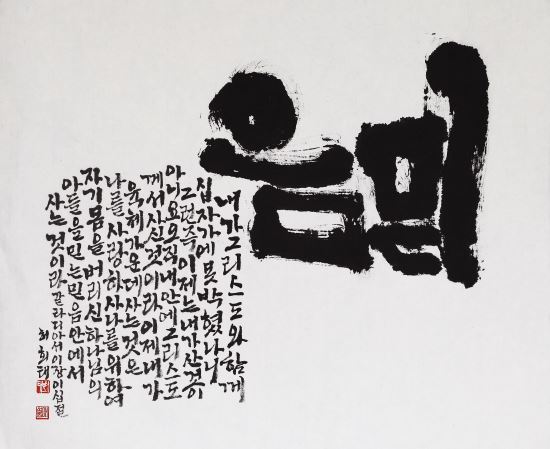 믿음
내가 그리스도와 함께
십자가에 못 박혔나니
그런즉 이제는 내가 산 것이
아니요 오직 내 안에 그리스도
께서 사신 것이라 이제 내가
육체 가운데 사는 것은
나를 사랑하사 나를 위하여
자기 몸을 버리신 하나님의
아들을 믿는 믿음 안에서
사는 것이라 갈라디아서 이장 이십절
허희태